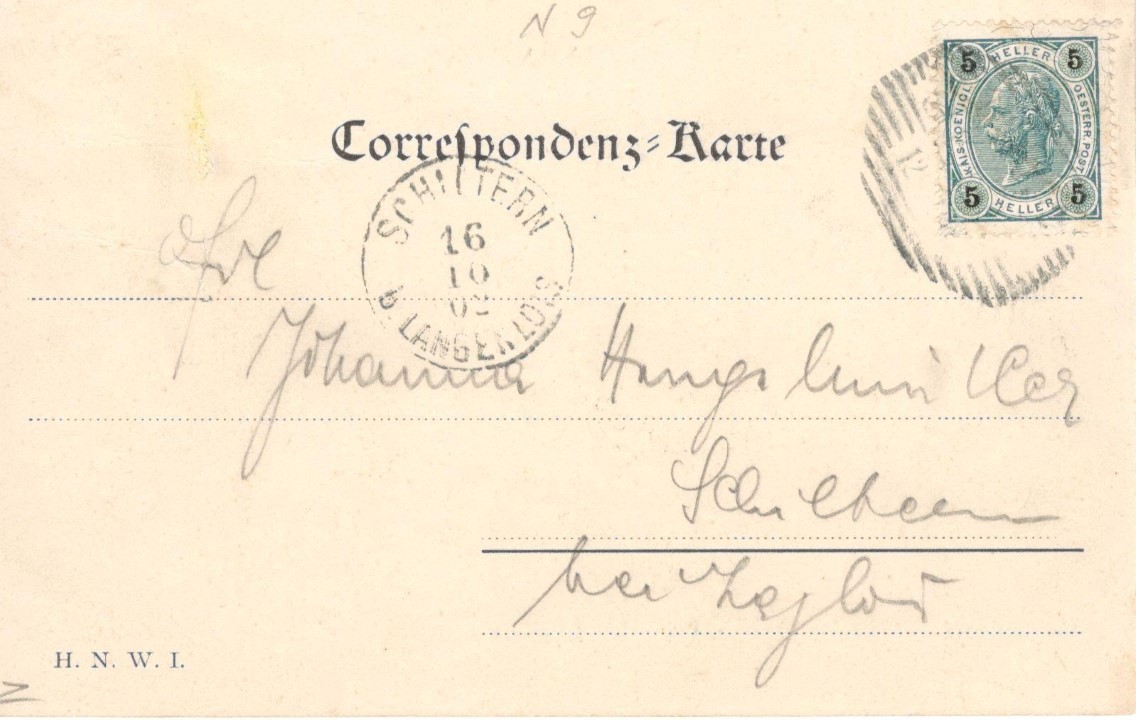 N 9
Correspondenz-Karte
HELLER
5 5
KAIS. KOENIGL. OESTERR. POST.
5 5
HELLER
12
SCHILTERN
16
10
b. LANGENLOIS
Frl
Johanna
Schiltern
bei
H. N. W. I.